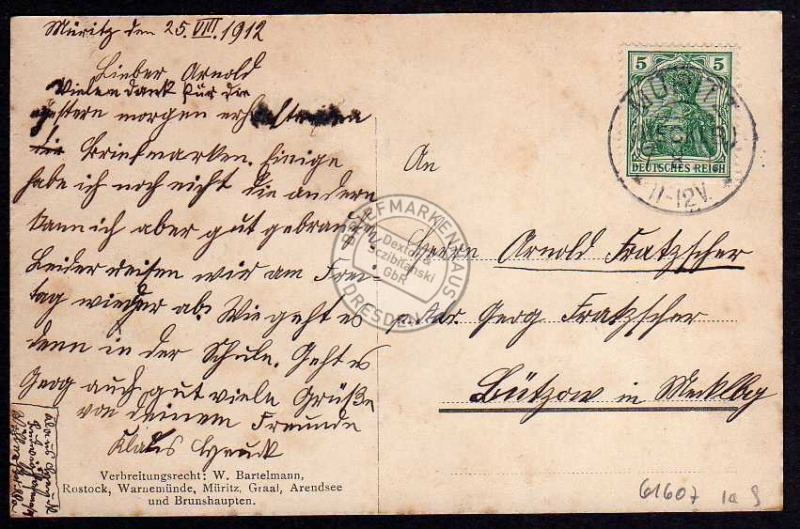 Müritz den 25. VIII. 1912
Lieber Arnold
Vielen dank für die
gestern morgen
Briefmarken. Einige
habe ich noch nicht die andern
kann ich aber gut
Leider reisen wir am Frei-
tag wieder ab. Wie geht es
denn in der Schule. Geht es
Georg auch gut viele Grüße
von deinem Freunde
Klaus
Verbreitungsrecht: W. Bartelmann,
Rostock, Warnemünde, Müritz, Graal, Arendsee
und Brunshaupten.
5 5
DEUTSCHES REICH
MÜRITZ
(MECKLB)
11-12V.
An
Herrn Arnold Fratzscher
Adr. Georg Fratzscher
Bützow in Mecklbg
BRIEFMARKENHAUS
Dextor &
Sczibilanski
GbR
DRESDEN
61607 1a S